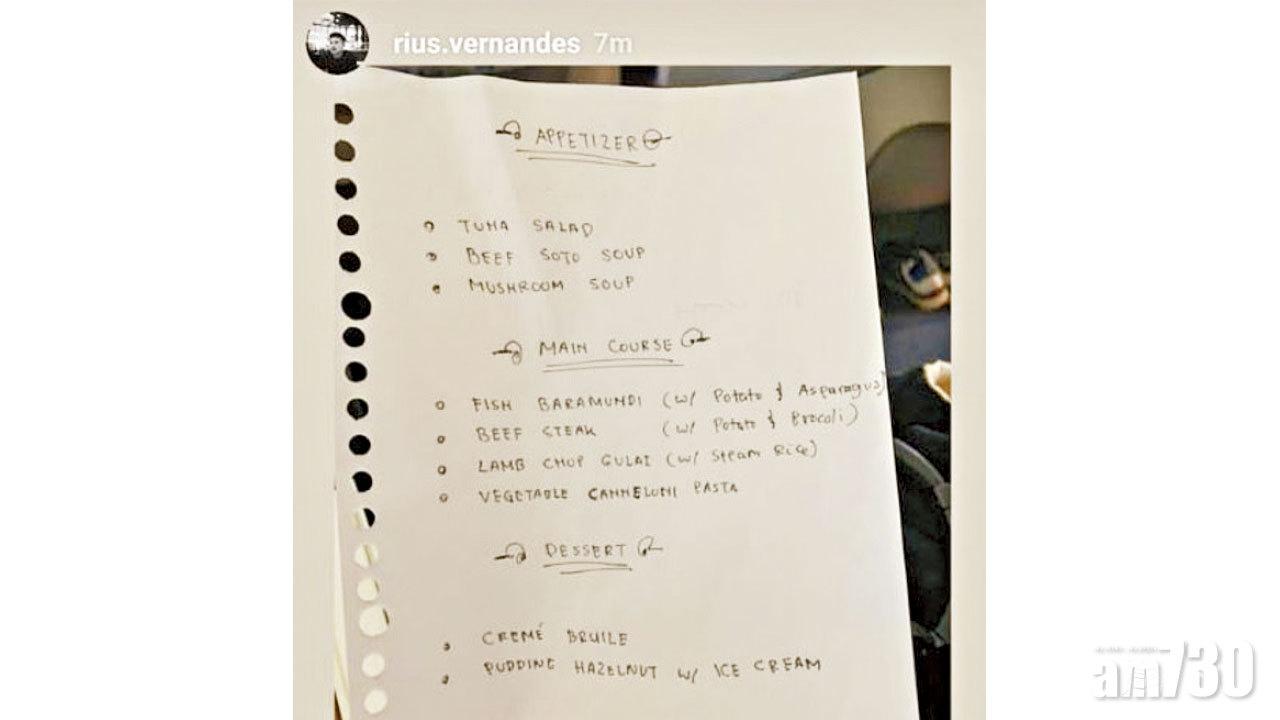 rius.vernandes 7m
APPETIZER
TUNA SALAD
BEEF SOTO SOUP
MUSHROOM SOUP
MAIN COURSE
FISH BARAMUNDI (w/ Potato & Asparagus)
BEEF STEAK (w/ Potato & Brocoli)
LAMB CHOP GULAI (w/ Steam Rice)
VEGETABLE CANNELONI PASTA
DESSERT
CREMÉ BRUILE
PUDDING HAZELNUT w/ ICE CREAM
am730